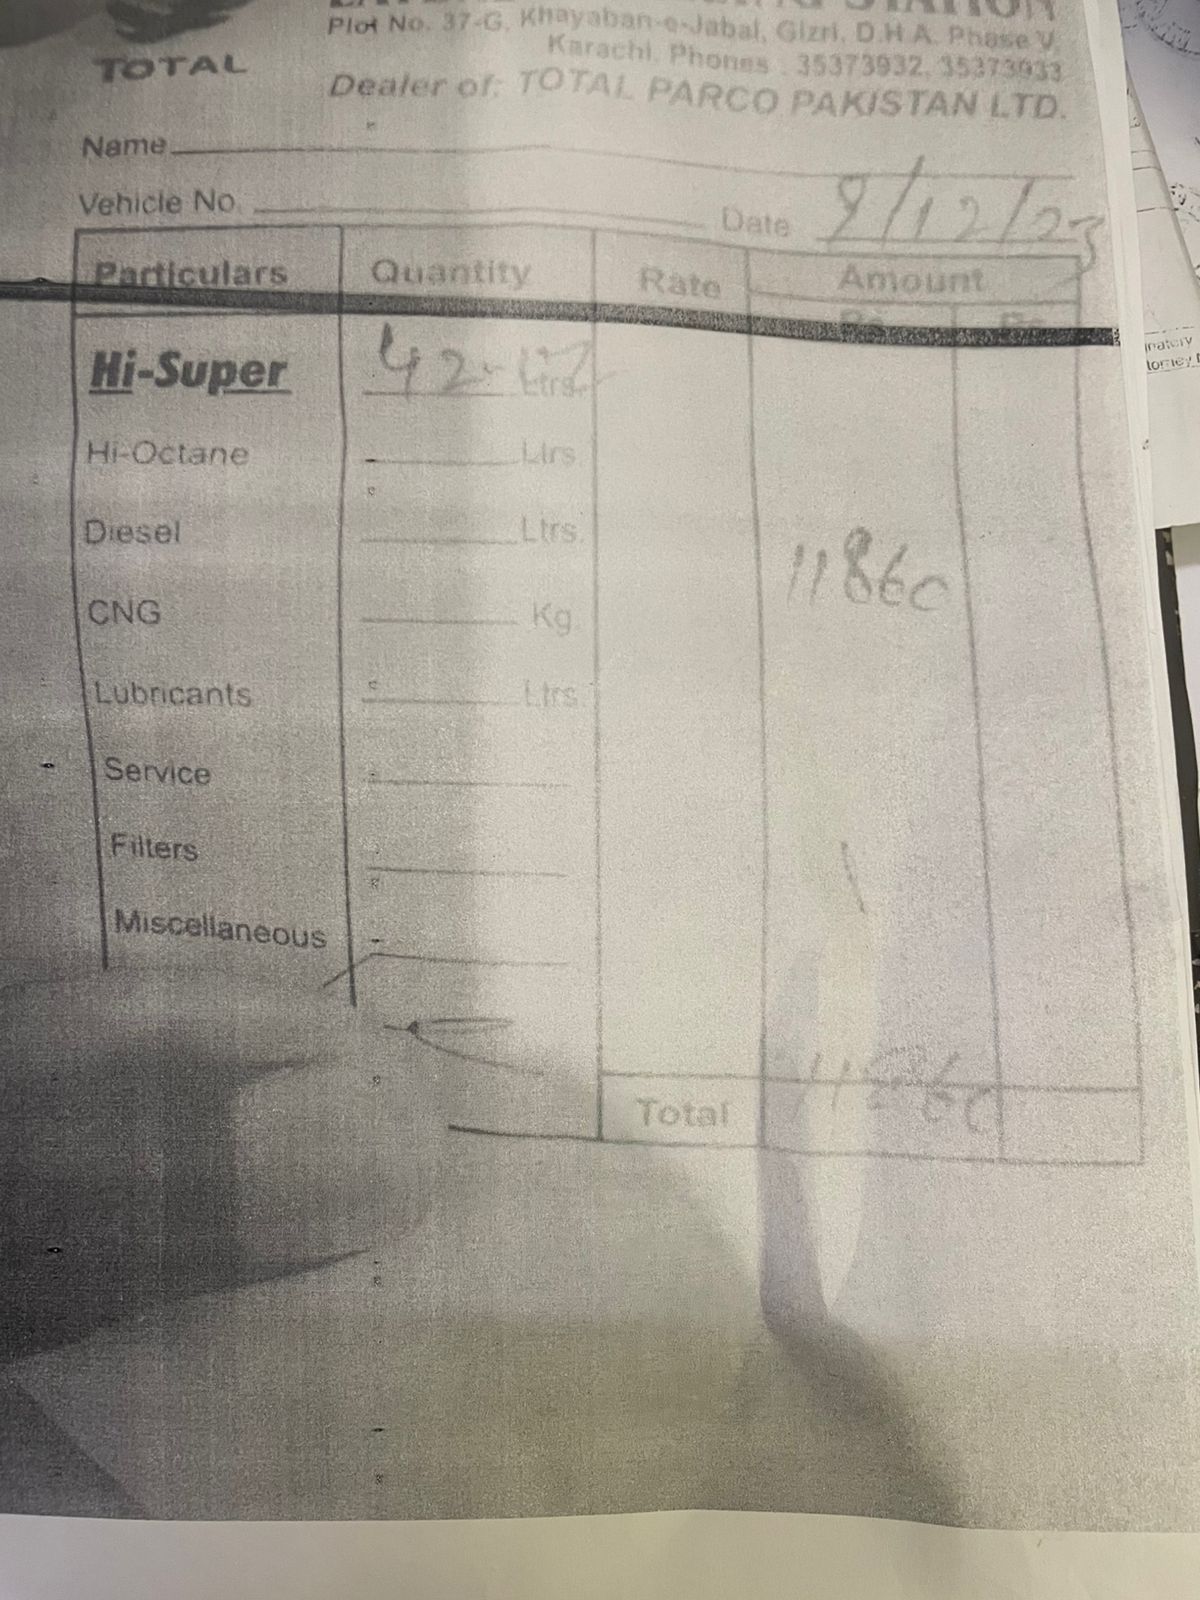 STATION
Plot No. 37-G, Khayaban-e-Jabal, Gizri, D.H.A. Phase V,
Karachi. Phones : 35373932, 35373933
TOTAL
Dealer of: TOTAL PARCO PAKISTAN LTD.
Name
Vehicle No. Date 9/12/23
Particulars Quantity Rate Amount
Rs. Ps.
Hi-Super 42- Ltrs.
Hi-Octane Ltrs.
Diesel Ltrs.
11860
CNG Kg.
Lubricants Ltrs.
Service
Filters
Miscellaneous
Total 11860